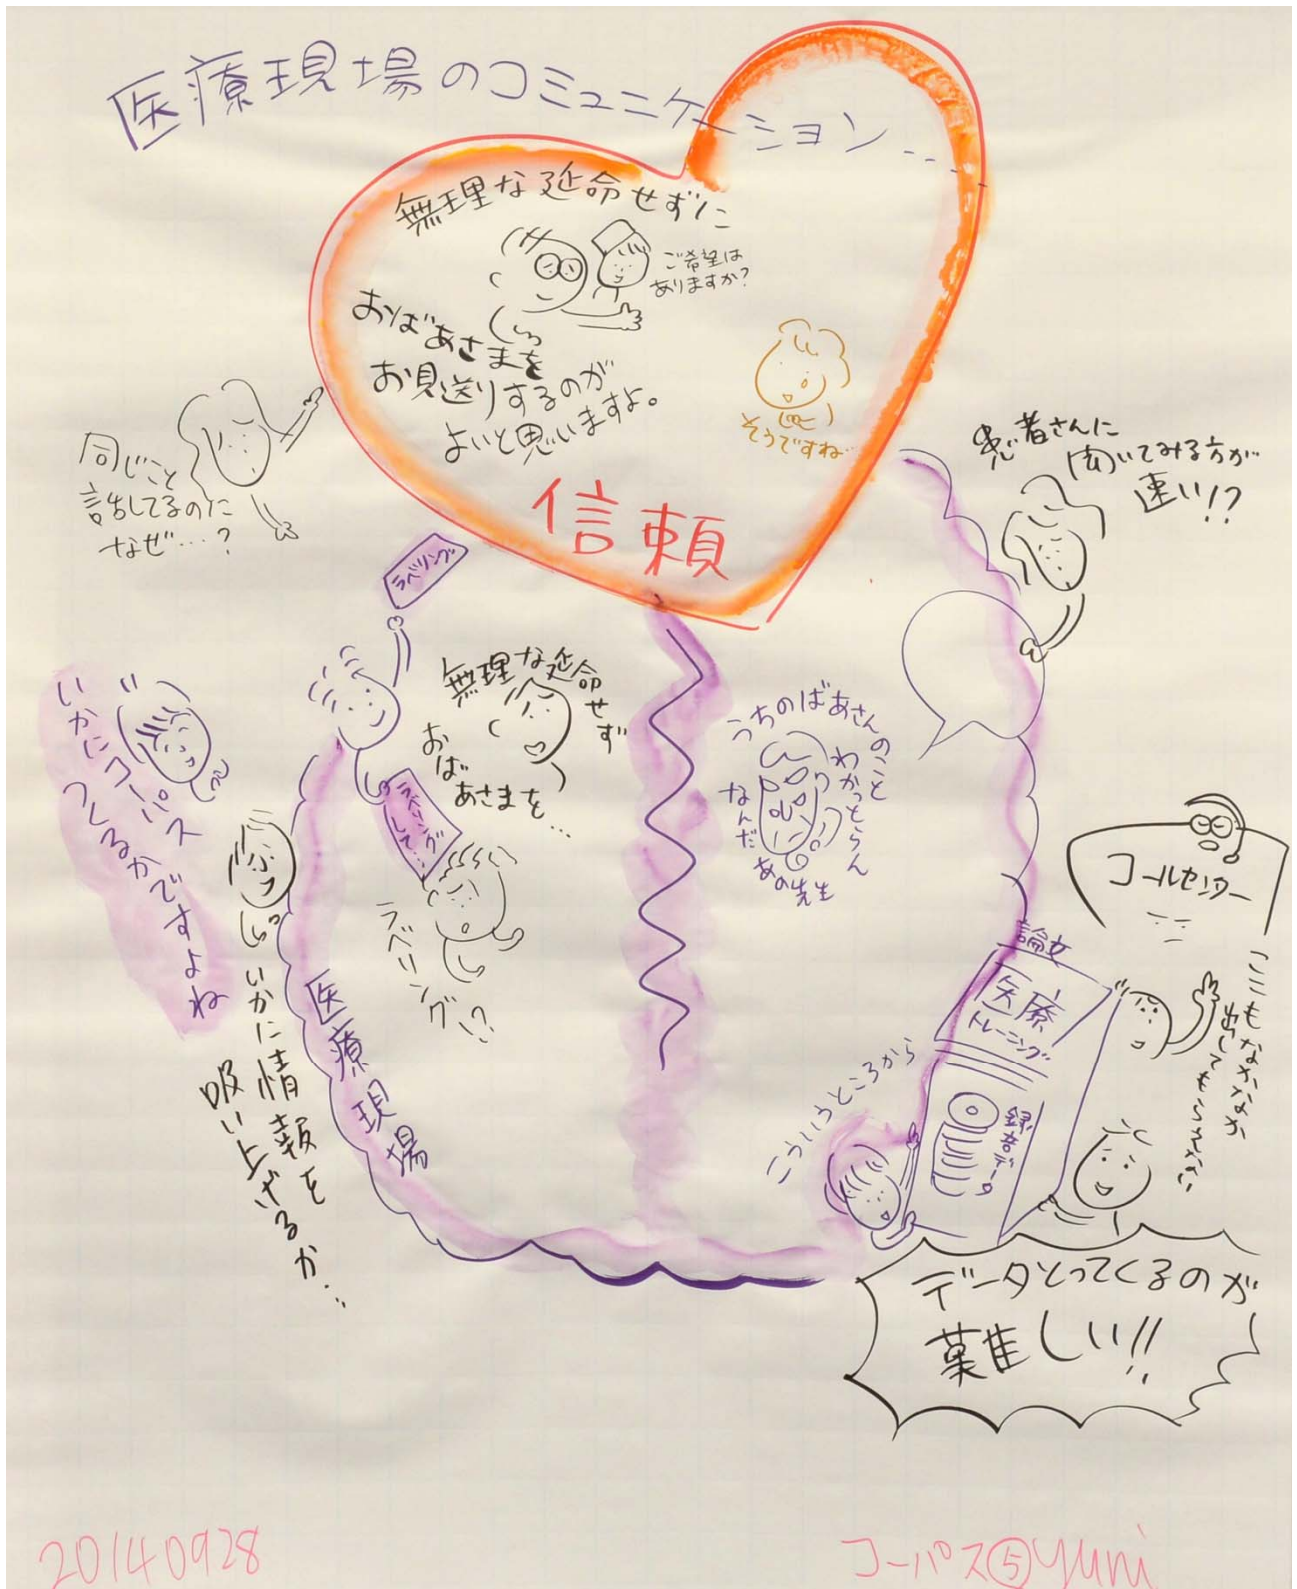 医療現場のコミュニケーション...
無理な延命せずに
ご希望は
ありますか?
おばあさまを
お見送りするのが
よいと思いますよ。
そうですね
信頼
同じこと
話してるのに
なぜ…?
患者さんに
聞いてみる方が
速い!?
ラベリング
無理な延命せず
おば
あさまを…
ラベリング
して…
ラベリング!?
うちのばあさんのこと
わかっとらん
なんだ
あの先生
いかにコーパス
つくるかですよね
いかに情報を
吸い上げるか…
医療現場
コールセンター
ここもなかなか
出してもらえない
論文
医療
トレーニング
録音データ
こういうところから
データとってくるのが
難しい!!
20140928
コーパス⑤yuni